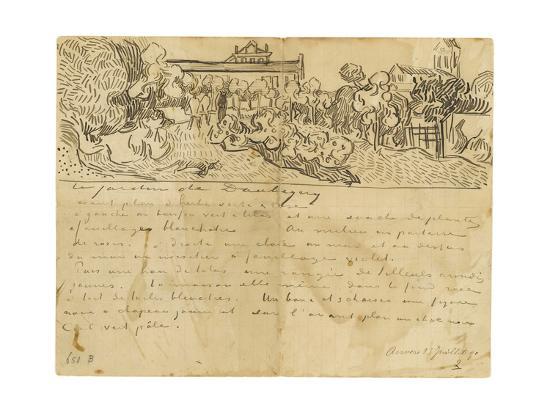 Le jardin de Daubigny
avant plan d'herbe verte & rose
à gauche un buisson vert & lilas et une souche de plante
à feuillages blanchâtres Au milieu un parterre
de roses. à droite une claie un mur et au dessus
du mur un noisetier à feuillage violet.
Puis une haie de lilas une rangée de tilleuls arrondis
jaunes. La maison elle même dans le fond rose
à toit de tuiles bleuâtres. Un banc et 3 chaises une figure
noire à chapeau jaune et sur l'avant plan un chat noir
Ciel vert pâle.
651 B
Auvers 23 Juillet 90